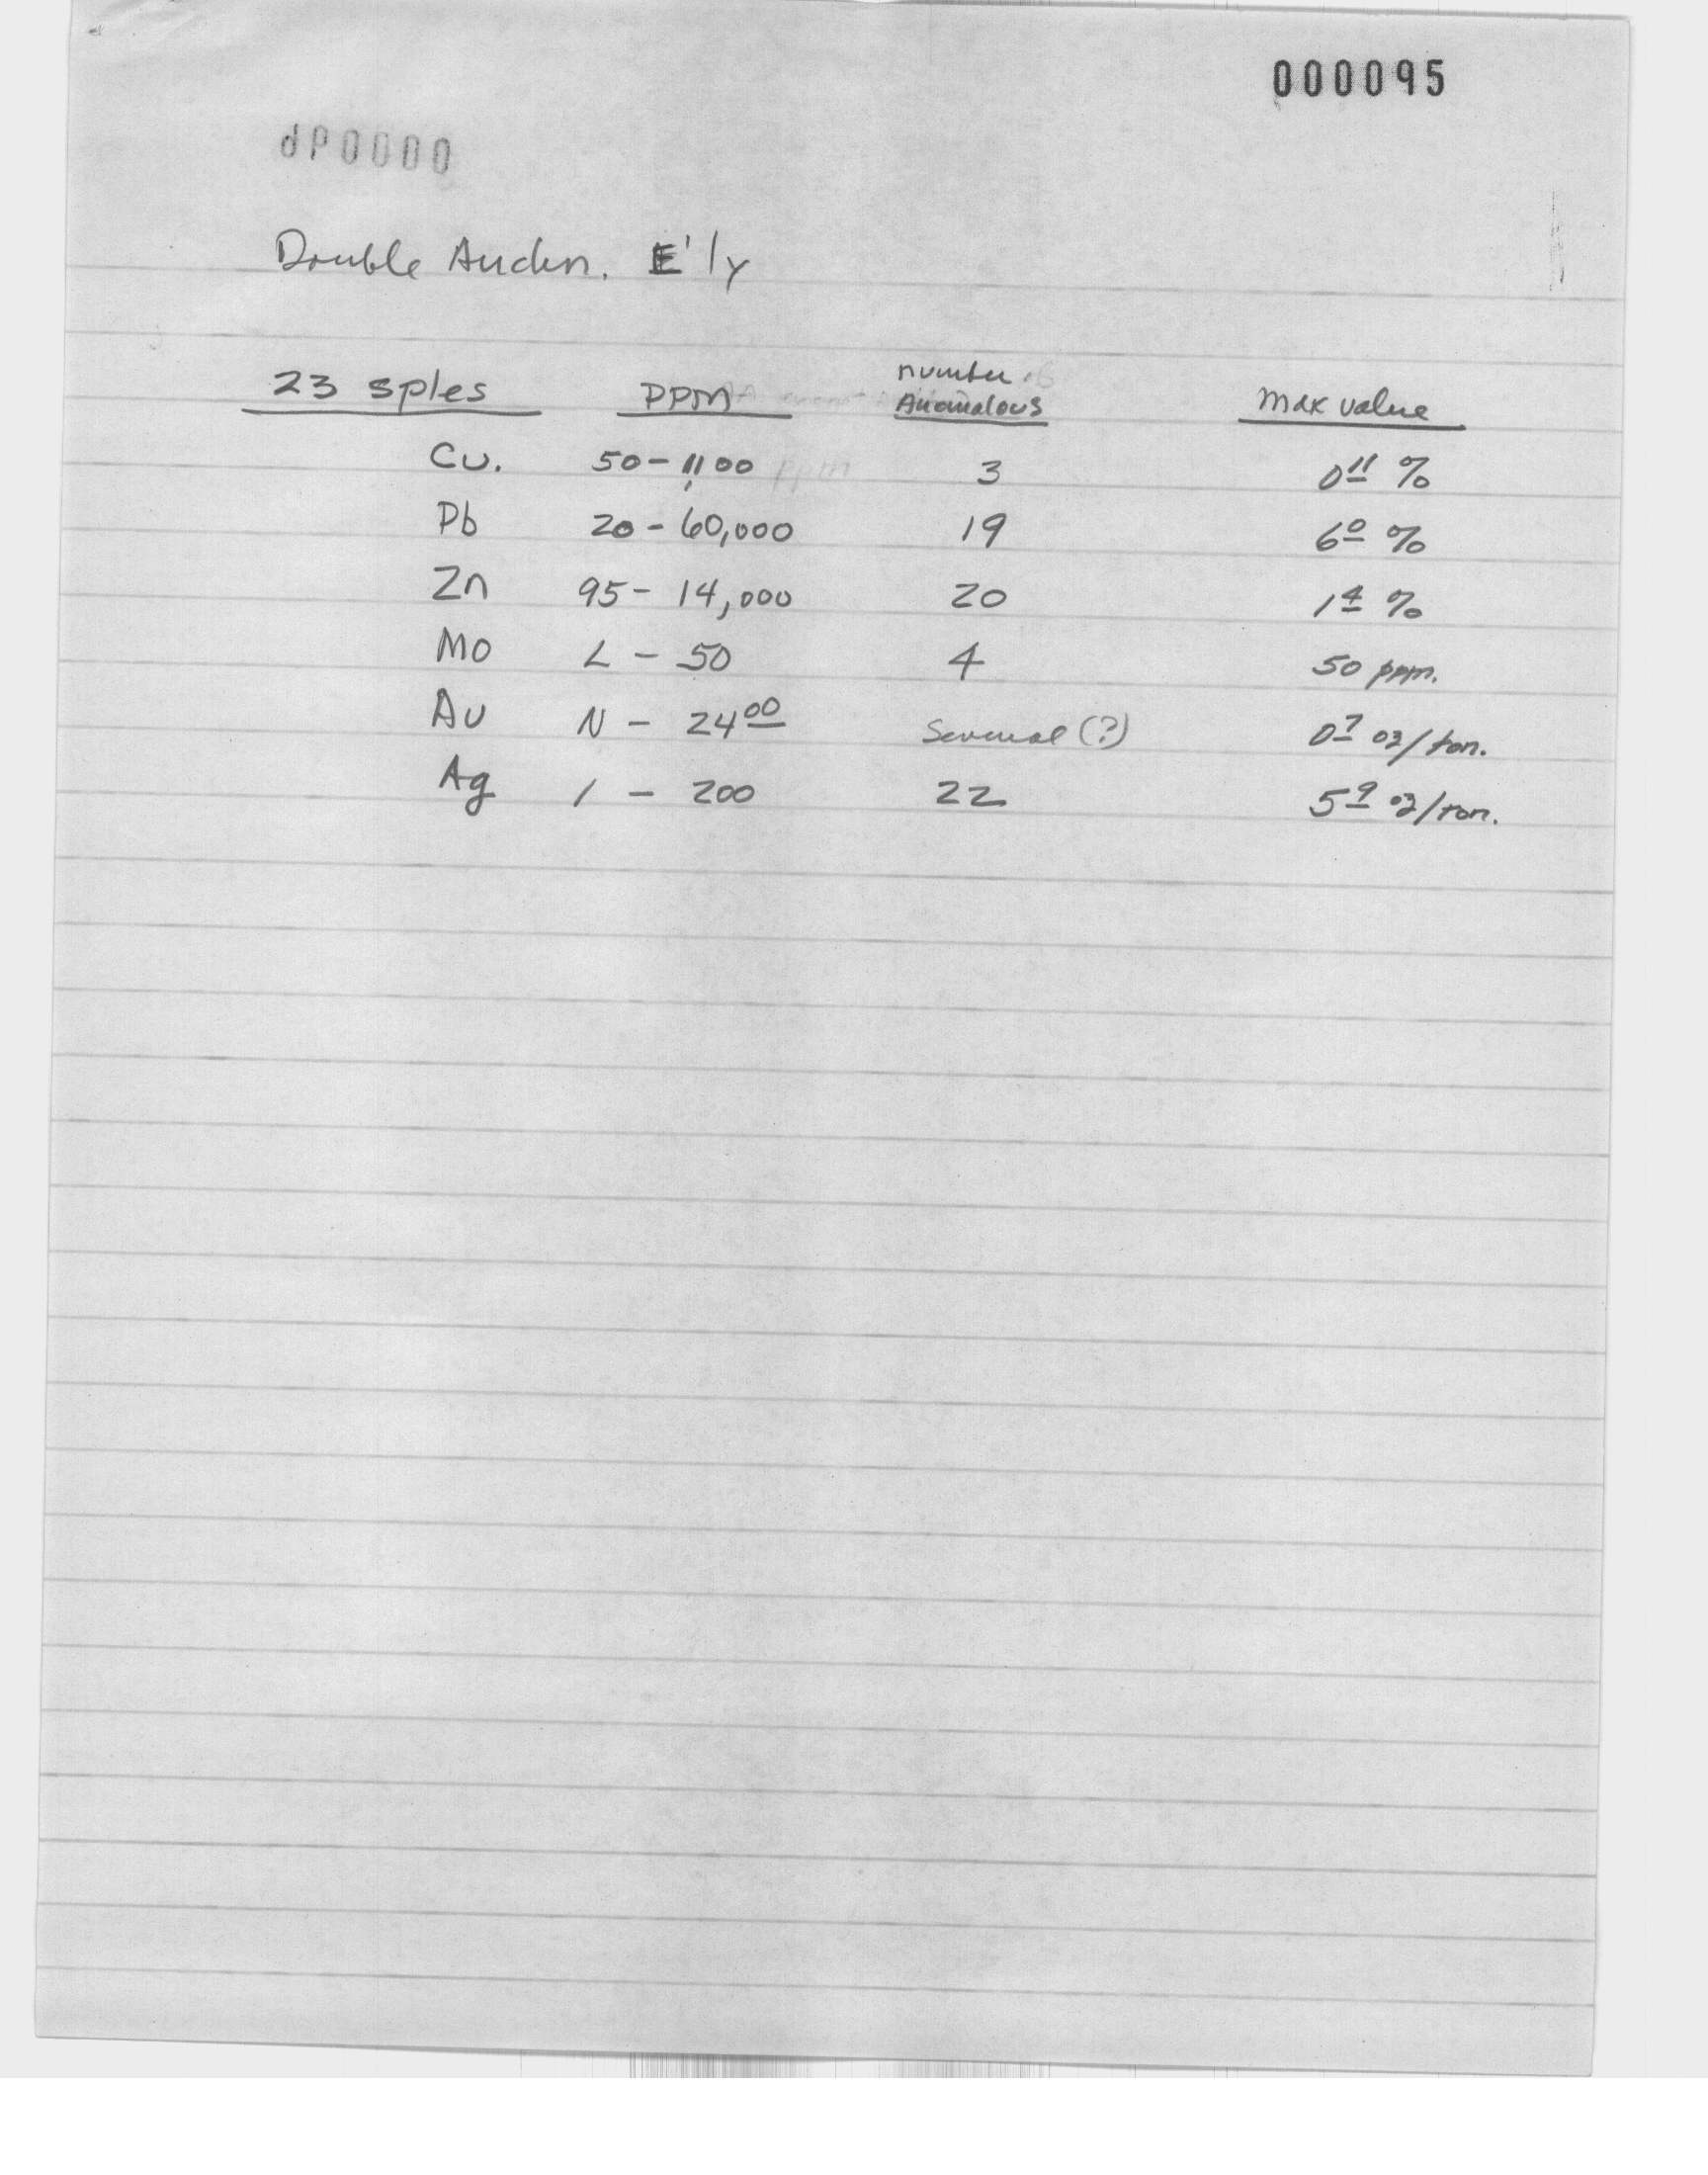 000095
Double Anchn. E'ly
number
23 sples PPM Anomalous max value
Cu. 50-1,100 ppm 3 0¹¹ %
Pb 20-60,000 19 6⁰ %
Zn 95-14,000 20 1⁴ %
Mo L - 50 4 50 ppm.
Au N - 24⁰⁰ Several (?) 0⁷ oz/ton.
Ag 1 - 200 22 5⁹ oz/ton.